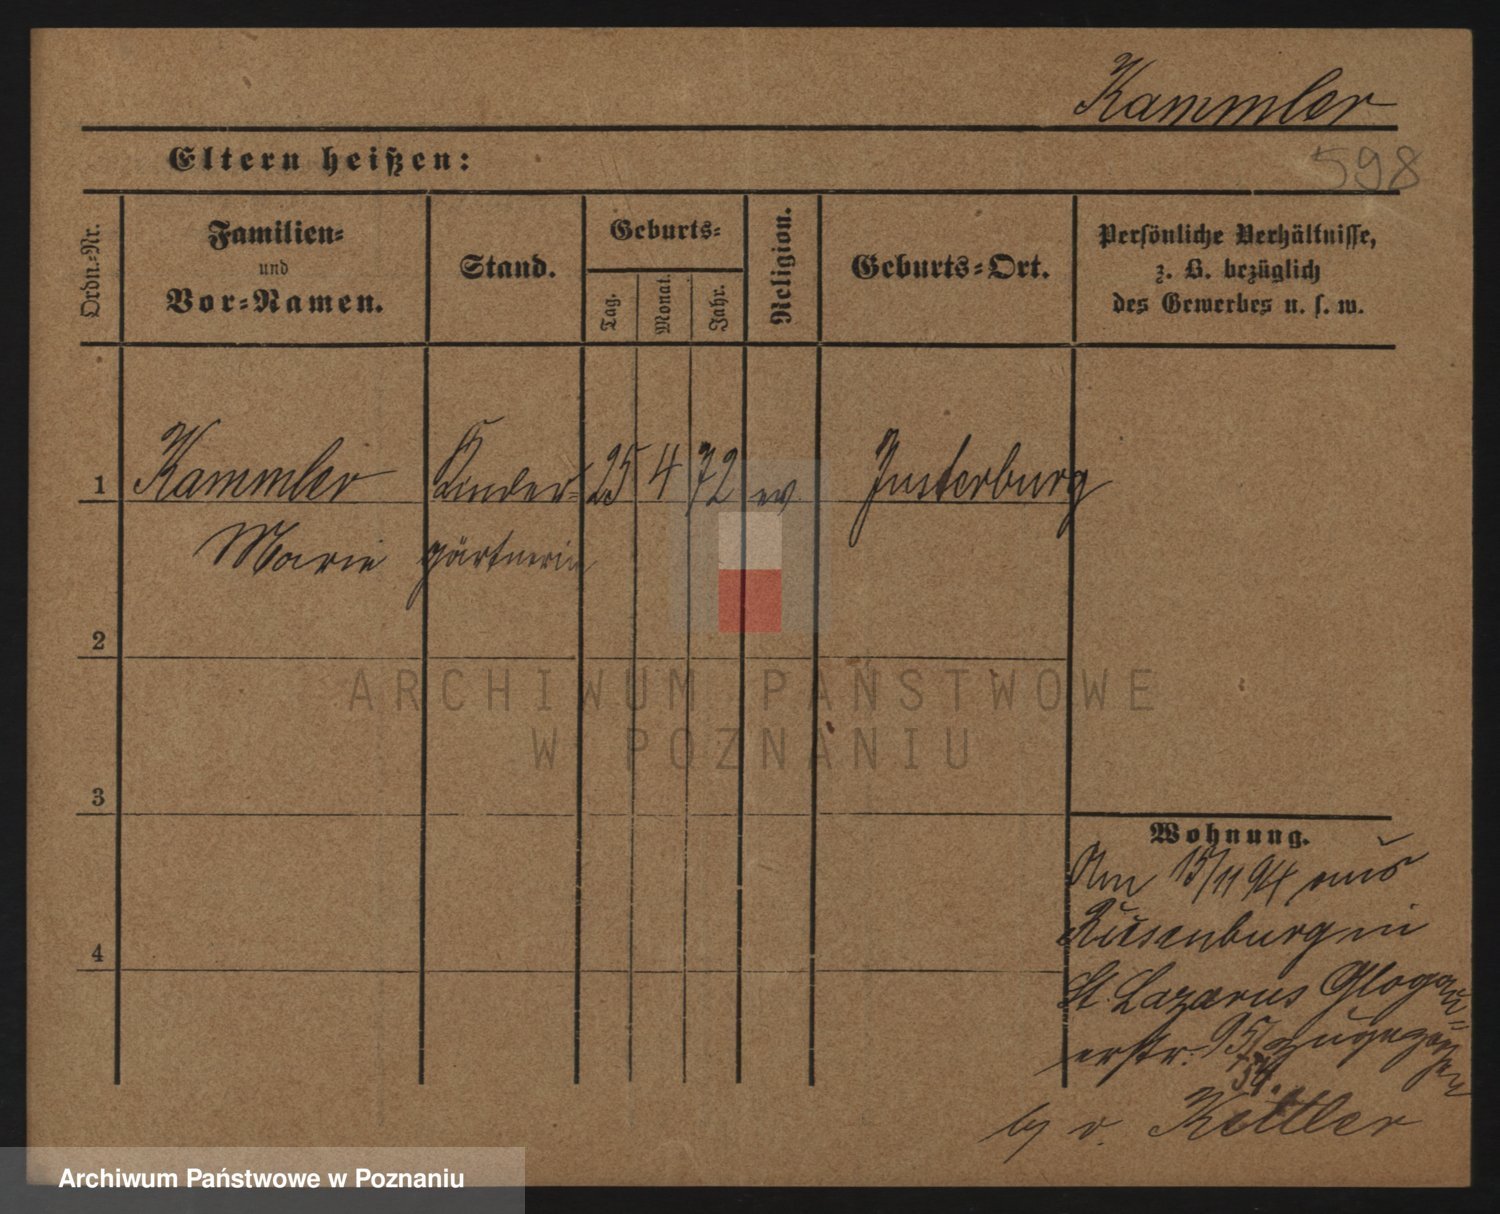 Kammler
Eltern heißen:
598
Ordn.-Nr.
Familien-
und
Vor-Namen.
Stand.
Geburts-
Tag.
Monat.
Jahr.
Religion.
Geburts-Ort.
Persönliche Verhältnisse,
z. B. bezüglich
des Gewerbes u. s. w.
1 Kammler Kinder- 25 4 72 ev. Insterburg
Marie gärtnerin
2
ARCHIWUM PAŃSTWOWE
W POZNANIU
3
Wohnung.
Am 15/11 94 aus
Riesenburg in
4
St. Lazarus Glogau-
erstr. 95/ zugezogen
b/ v. Kettler
Archiwum Państwowe w Poznaniu